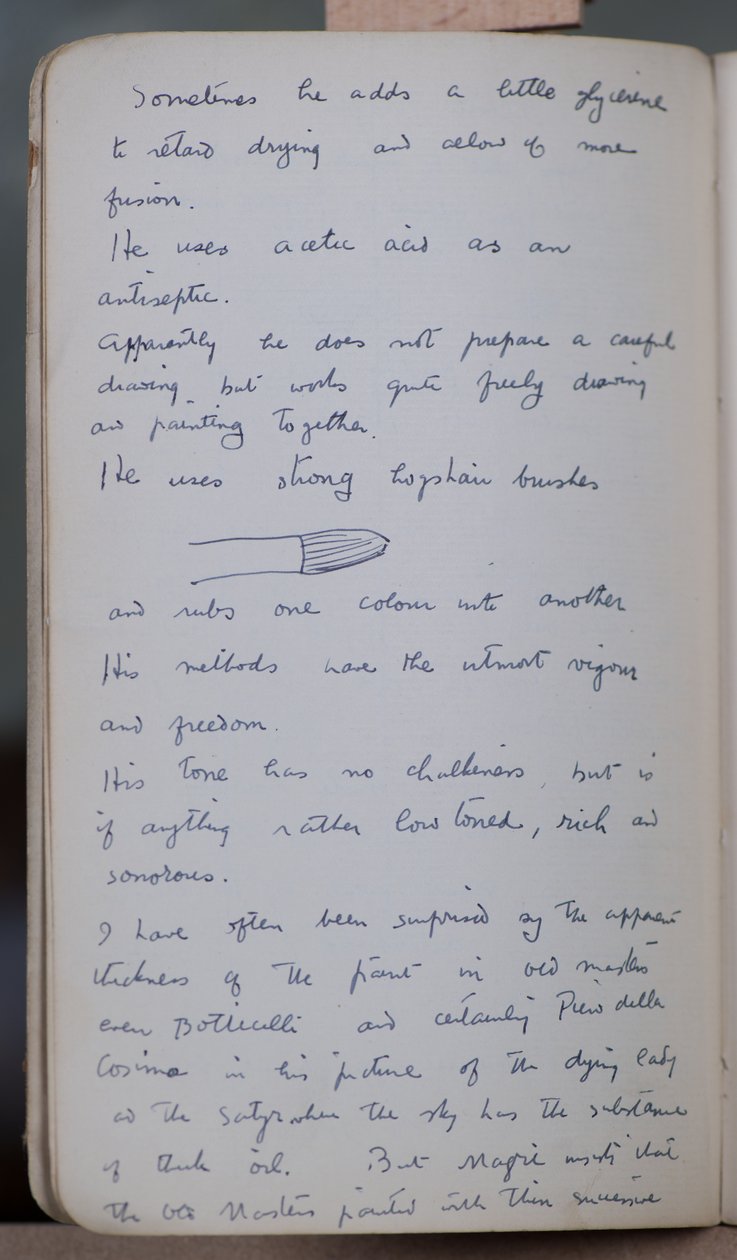 Sometimes he adds a little glycerine
to retard drying and allow of more
fusion.
He uses acetic acid as an
antiseptic.
Apparently he does not prepare a careful
drawing but works quite freely drawing
and painting together.
He uses strong hogshair brushes
and rubs one colour into another
His methods have the utmost vigour
and freedom.
His tone has no chalkiness, but is
if anything rather low toned, rich and
sonorous.
I have often been surprised by the apparent
thickness of the paint in old masters
even Botticelli and certainly Piero della
Cosimo in his picture of the dying lady
and the Satyr where the sky has the substance
of thick oil. But Magic insists that
the Old Masters painted with thin successive